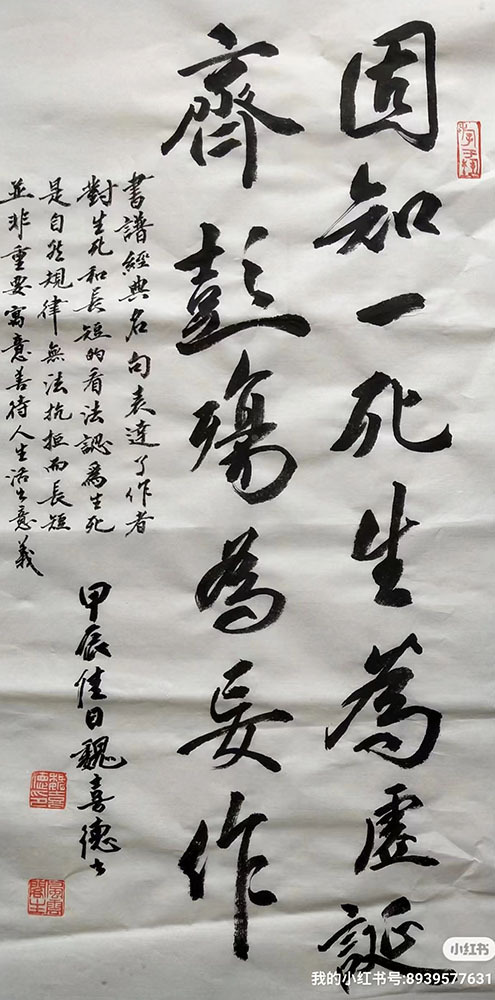 固知一死生為虛誕
齊彭殤為妄作
書譜經典名句表達了作者
對生死和長短的看法認為生死
是自然規律無法抗拒而長短
並非重要寓意善待人生活出意義
甲辰佳日魏喜德书
小红书
我的小红书号:8939577631